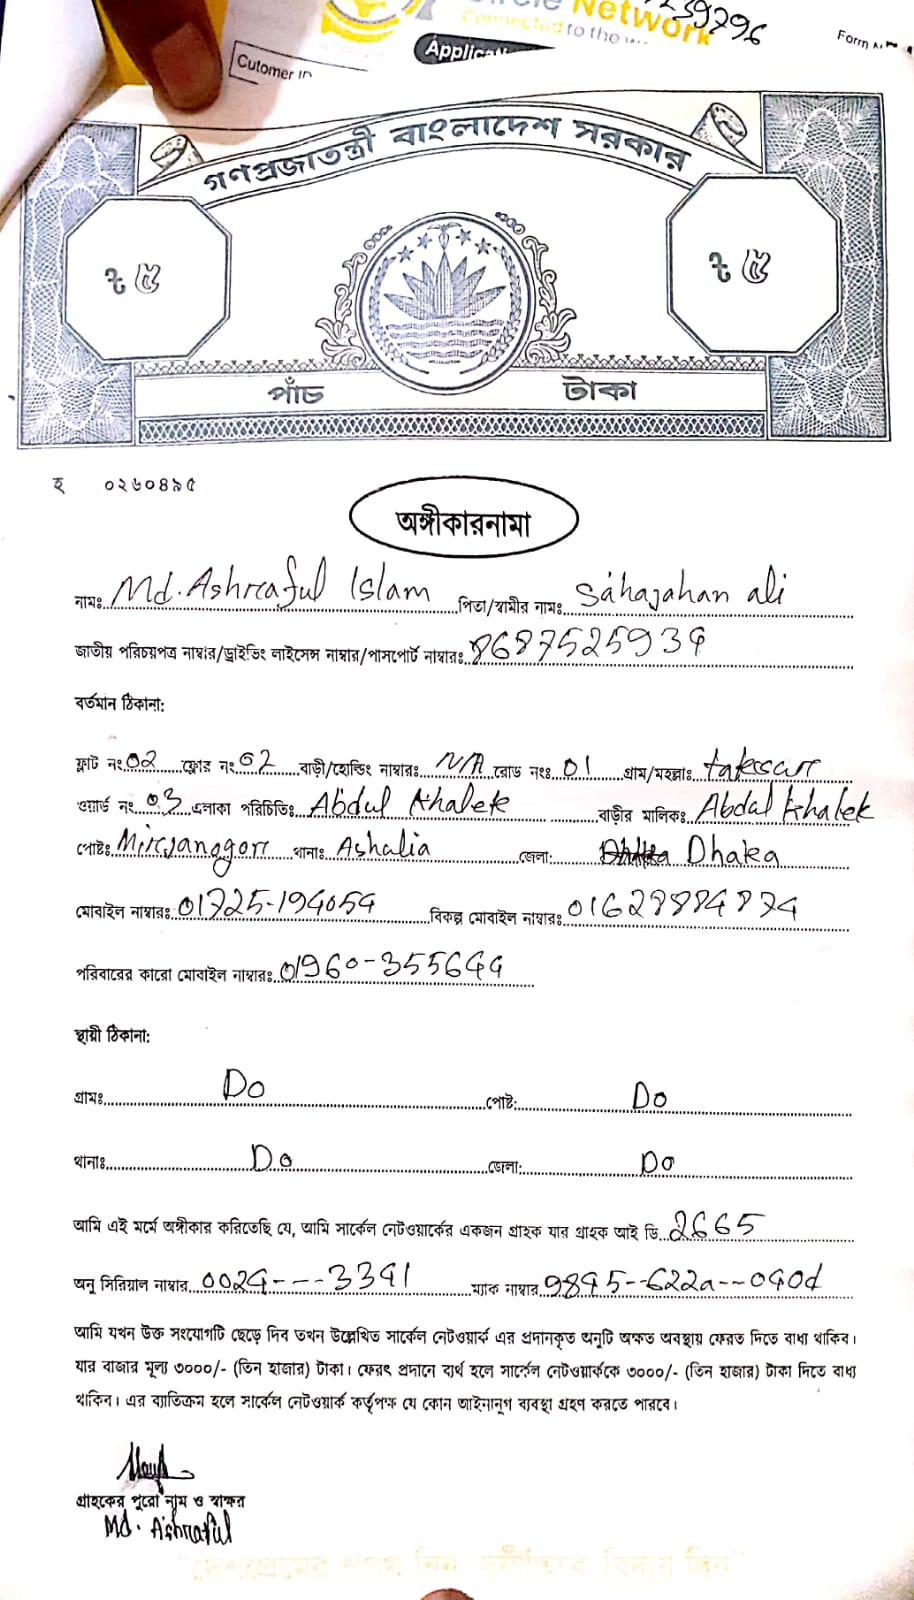 Network
239296
Connected to the
Form
Cutomer ID
গণপ্রজাতন্ত্রী বাংলাদেশ সরকার
৳ ৫
৳ ৫
পাঁচ টাকা
হ ০২৬০৪৯৫
অঙ্গীকারনামা
নামঃ Md. Ashraful Islam পিতা/স্বামীর নাম: Sahajahan ali
জাতীয় পরিচয়পত্র নাম্বার/ড্রাইভিং লাইসেন্স নাম্বার/পাসপোর্ট নাম্বারঃ 8687525934
বর্তমান ঠিকানা:
ফ্লাট নং 02 ফ্লোর নং 02 বাড়ী/হোল্ডিং নাম্বারঃ N/A রোড নংঃ 01 গ্রাম/মহল্লাঃ
ওয়ার্ড নং 03 এলাকা পরিচিতিঃ Abdul Khalek বাড়ীর মালিকঃ Abdal Khalek
পোষ্টঃ থানাঃ Ashalia জেলা: Dhaka
মোবাইল নাম্বারঃ 01725-194054 বিকল্প মোবাইল নাম্বারঃ 01628884874
পরিবারের কারো মোবাইল নাম্বারঃ 01960-355644
স্থায়ী ঠিকানা:
গ্রামঃ Do পোষ্ট: Do
থানাঃ Do জেলা: Do
আমি এই মর্মে অঙ্গীকার করিতেছি যে, আমি সার্কেল নেটওয়ার্কের একজন গ্রাহক যার গ্রাহক আই ডি 2665
অনু সিরিয়াল নাম্বার 0024---3341 ম্যাক নাম্বার 9845--622a--040d
আমি যখন উক্ত সংযোগটি ছেড়ে দিব তখন উল্লেখিত সার্কেল নেটওয়ার্ক এর প্রদানকৃত অনুটি অক্ষত অবস্থায় ফেরত দিতে বাধ্য থাকিব।
যার বাজার মূল্য ৩০০০/- (তিন হাজার) টাকা। ফেরৎ প্রদানে ব্যর্থ হলে সার্কেল নেটওয়ার্ককে ৩০০০/- (তিন হাজার) টাকা দিতে বাধ্য
থাকিব। এর ব্যাতিক্রম হলে সার্কেল নেটওয়ার্ক কর্তৃপক্ষ যে কোন আইনানুগ ব্যবস্থা গ্রহণ করতে পারবে।
গ্রাহকের পুরো নাম ও স্বাক্ষর
Md. Ashraful
"দেশপ্রেমের শপথ নিন, দুর্নীতিরে বিদায় দিন"